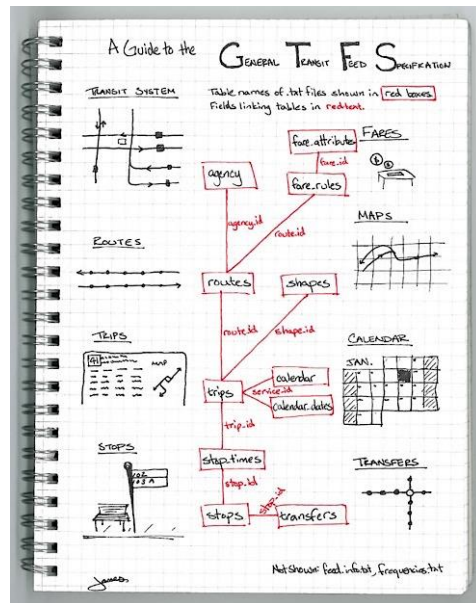 A Guide to the GENERAL TRANSIT FEED SPECIFICATION
TRANSIT SYSTEM
Table names of .txt files shown in red boxes.
Fields linking tables in red text.
fare_attributes
FARES
fare_id
agency
fare_rules
agency_id
route_id
MAPS
ROUTES
routes
shapes
route_id
shape_id
TRIPS
41
MAP
CALENDAR
JAN.
calendar
trips
service_id
calendar_dates
trip_id
STOPS
102
103A
stop_times
TRANSFERS
stop_id
stop_id
stops
transfers
James
Not Shown: feed_info.txt, frequencies.txt